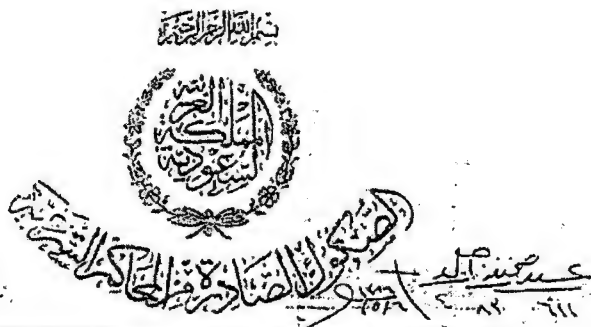 بسم الله الرحمن الرحيم
المملكة العربية السعودية
الصكوك الصادرة من المحاكم الشرعية